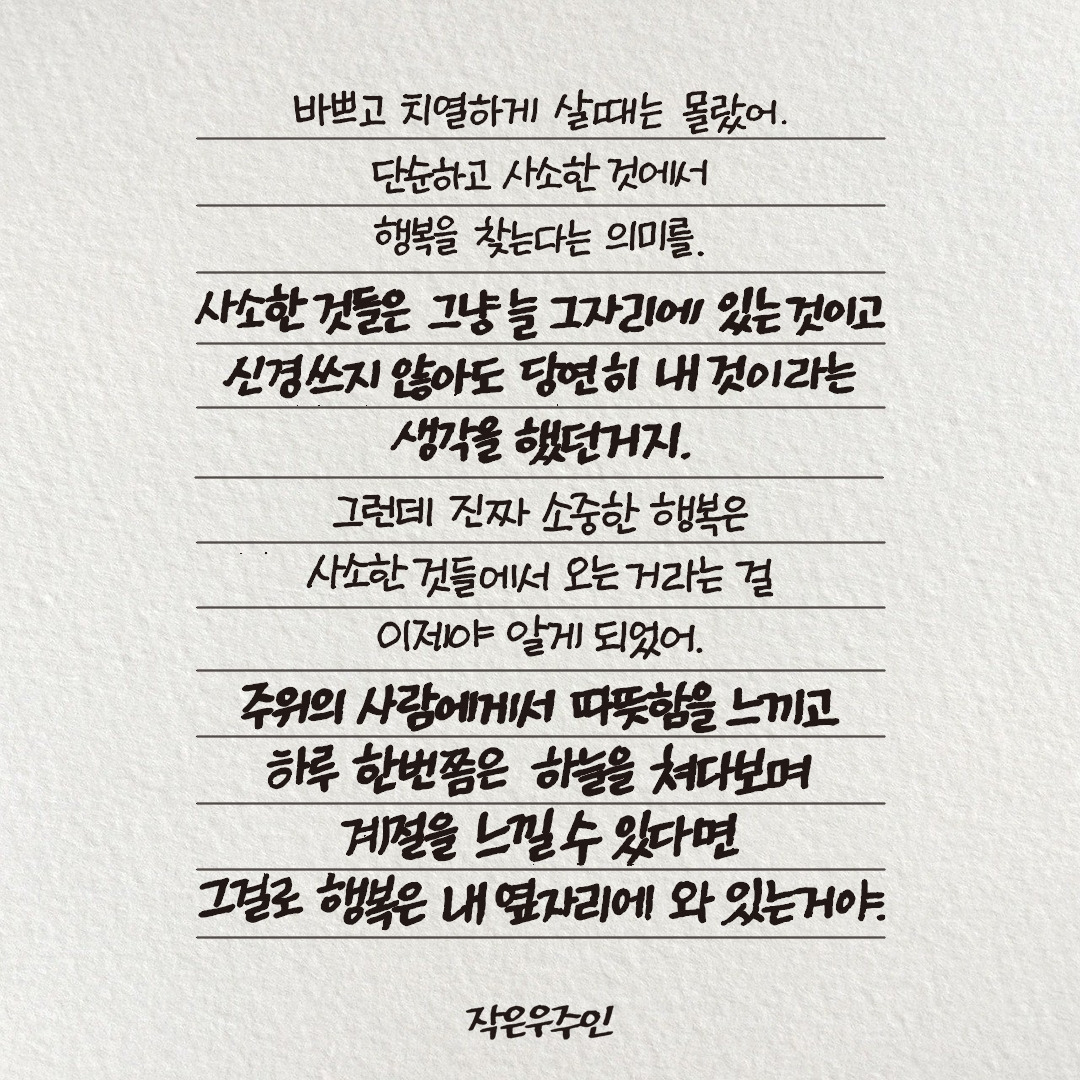 바쁘고 치열하게 살때는 몰랐어.
단순하고 사소한 것에서
행복을 찾는다는 의미를.
사소한 것들은 그냥 늘 그자리에 있는것이고
신경쓰지 않아도 당연히 내 것이라는
생각을 했던거지.
그런데 진짜 소중한 행복은
사소한 것들에서 오는거라는 걸
이제야 알게 되었어.
주위의 사람에게서 따뜻함을 느끼고
하루 한번쯤은 하늘을 쳐다보며
계절을 느낄 수 있다면
그걸로 행복은 내 옆자리에 와 있는거야.
작은우주인